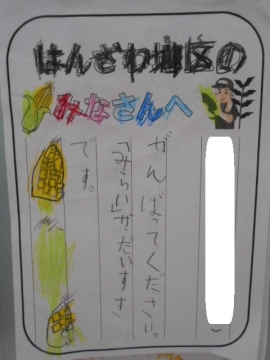 はんざわ地区の
みなさんへ
がんばってください。
「みらい」がだいすき
です。